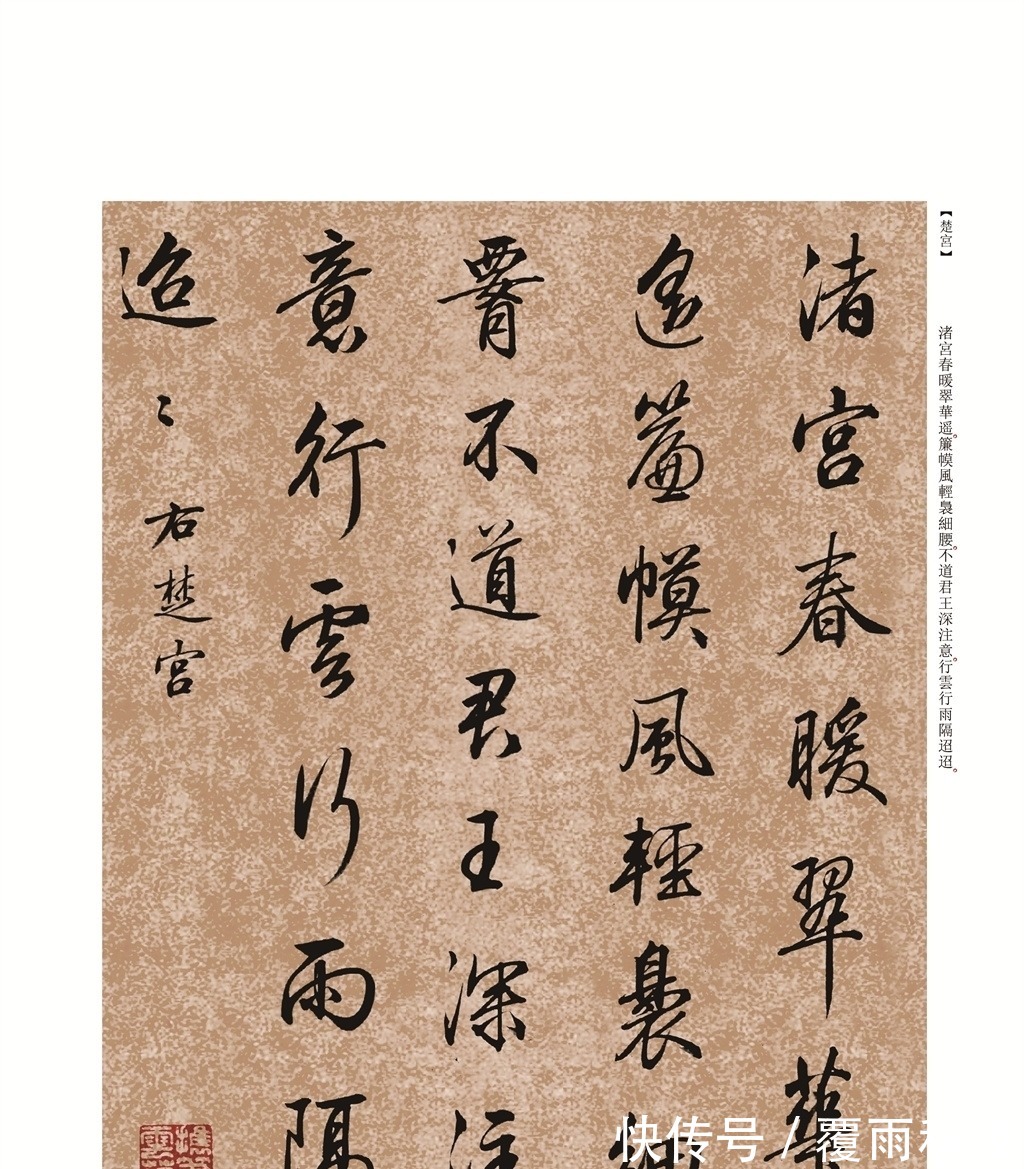 【楚宮】
渚宮春暖翠華遥。簾幙風輕裊細腰。不道君王深注意。行雲行雨隔迢迢。
渚宮春暖翠華
遥簾幙風輕裊細
腰不道君王深注
意行雲行雨隔
迢〻 右楚宮
快传号 / 覆雨